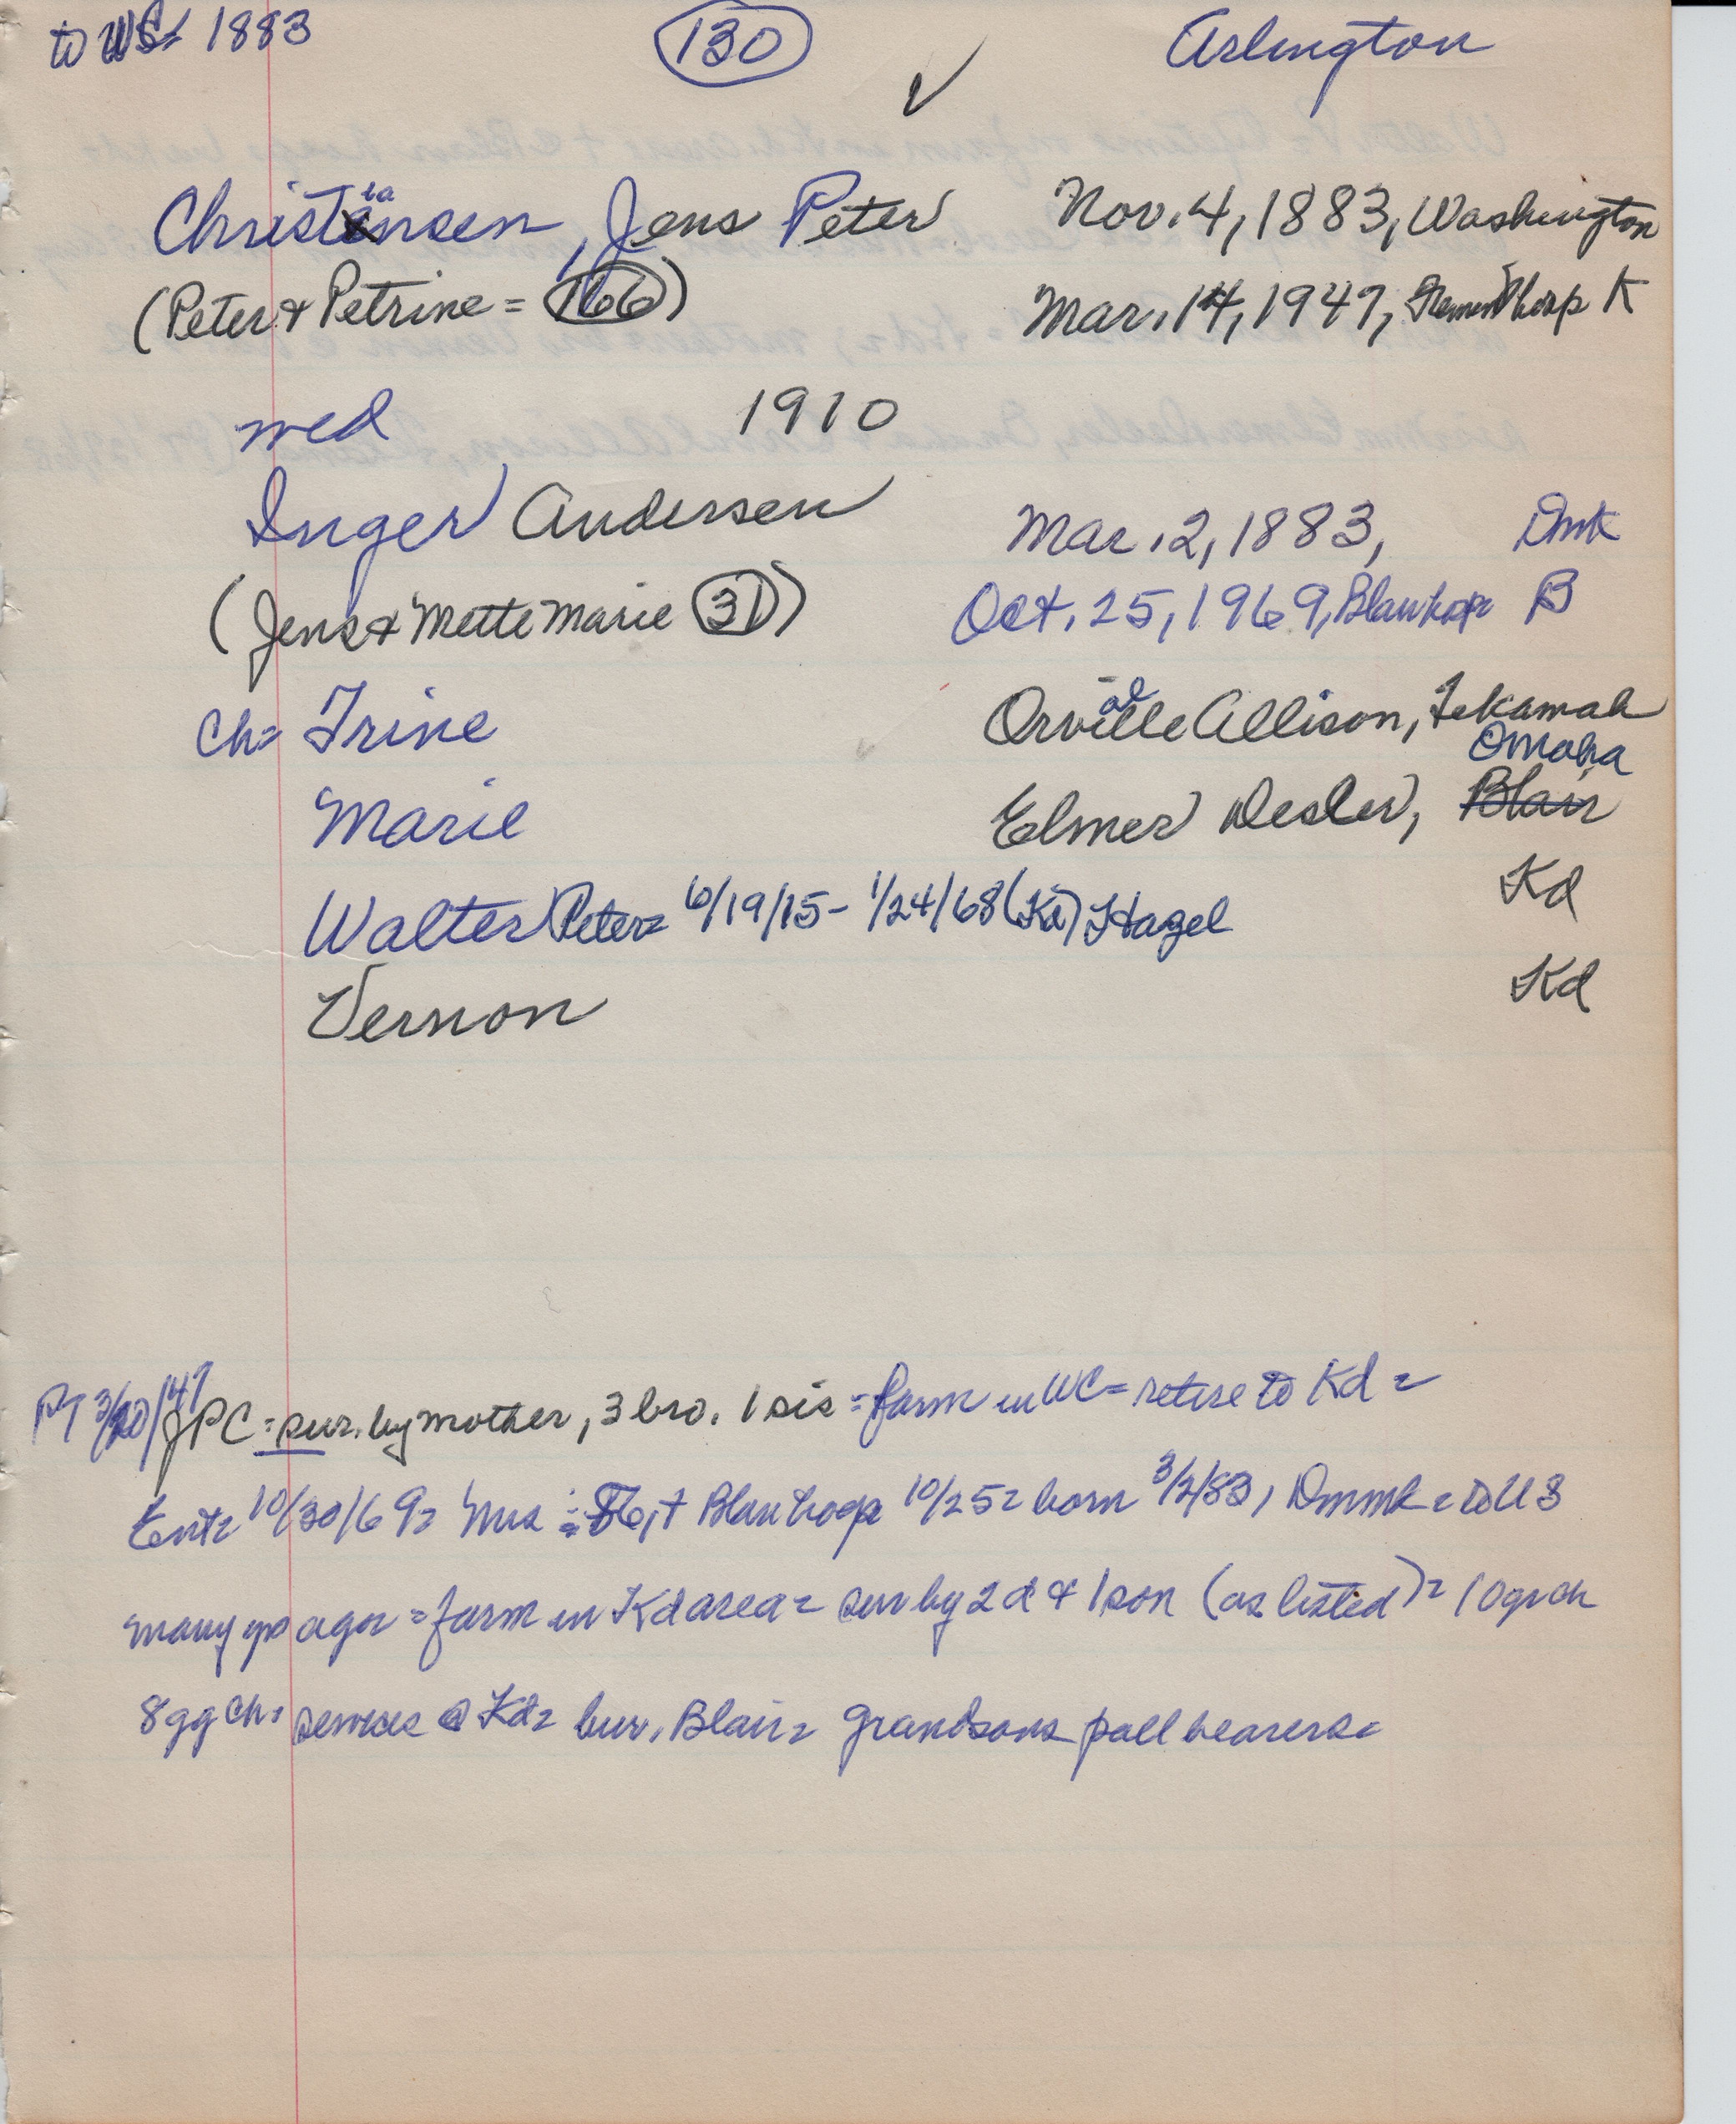 to WC= 1883 (130) ✓ Arlington
Christiansen, Jens Peter Nov. 4, 1883, Washington
(Peter & Petrine = (166)) Mar. 14, 1947, Fremont hosp K
med 1910
Inger Andersen Mar. 2, 1883, Dmk
(Jens & Mette Marie (31)) Oct. 25, 1969, Blair hosp B
Ch= Trine Orval Allison, Tekamah
Omaha
Marie Elmer Desler, Blair
Walter Peter= 6/19/15 - 1/24/68 (Kd) Hazel Kd
Vernon Kd
PT 3/20/47 JPC = sur. by mother, 3 bro. 1 sis = farm in WC = retire to Kd =
Ent= 10/30/69= Mrs = 86, + Blair hosp 10/25= born 3/2/83, Dnmk = to US
many yrs ago = farm in Kd area = sur by 2 d & 1 son (as listed) = 10 gr ch
8 gg ch= services @ Kd= bur. Blair= grandsons pall bearers=